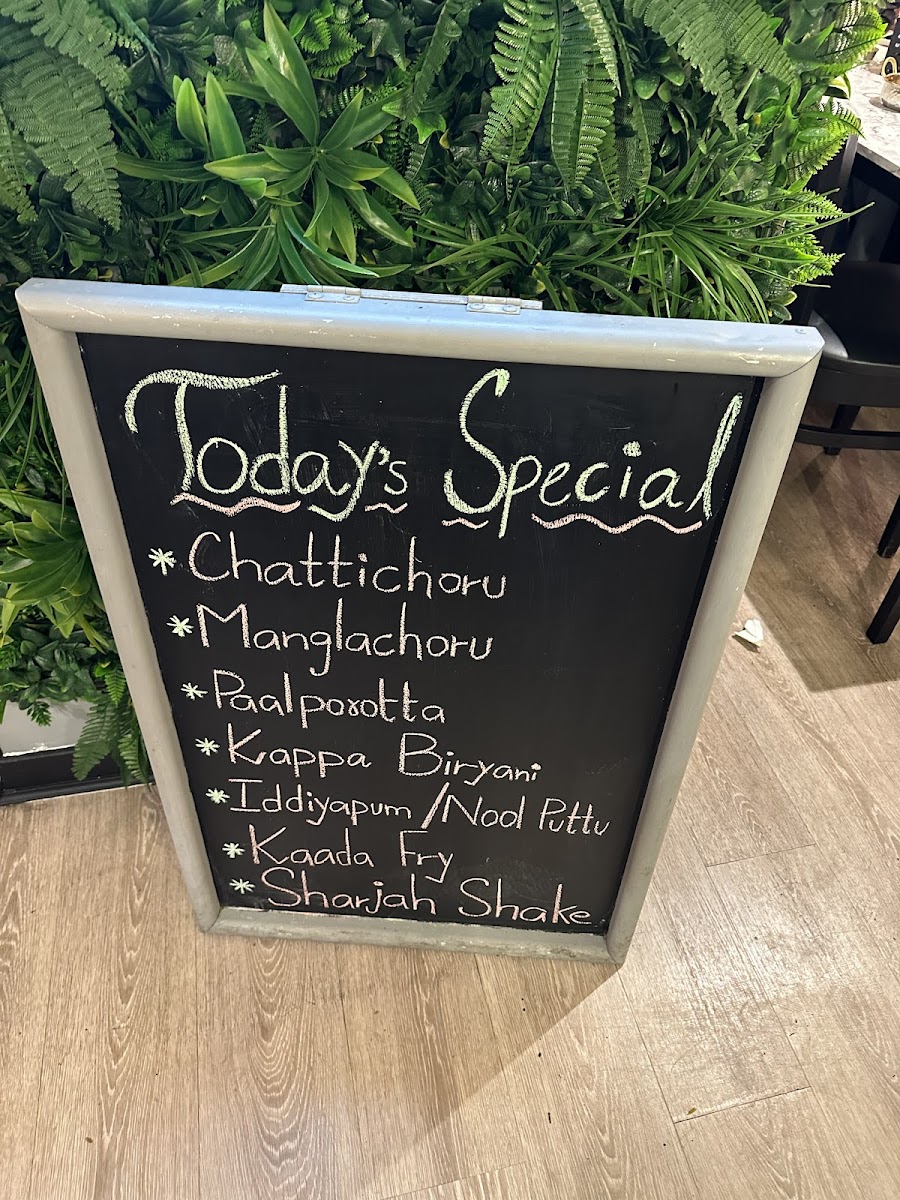 Today's Special
* Chattichoru
* Manglachoru
* Paalporotta
* Kappa Biryani
* Iddiyapum/Nool Puttu
* Kaada Fry
* Sharjah Shake